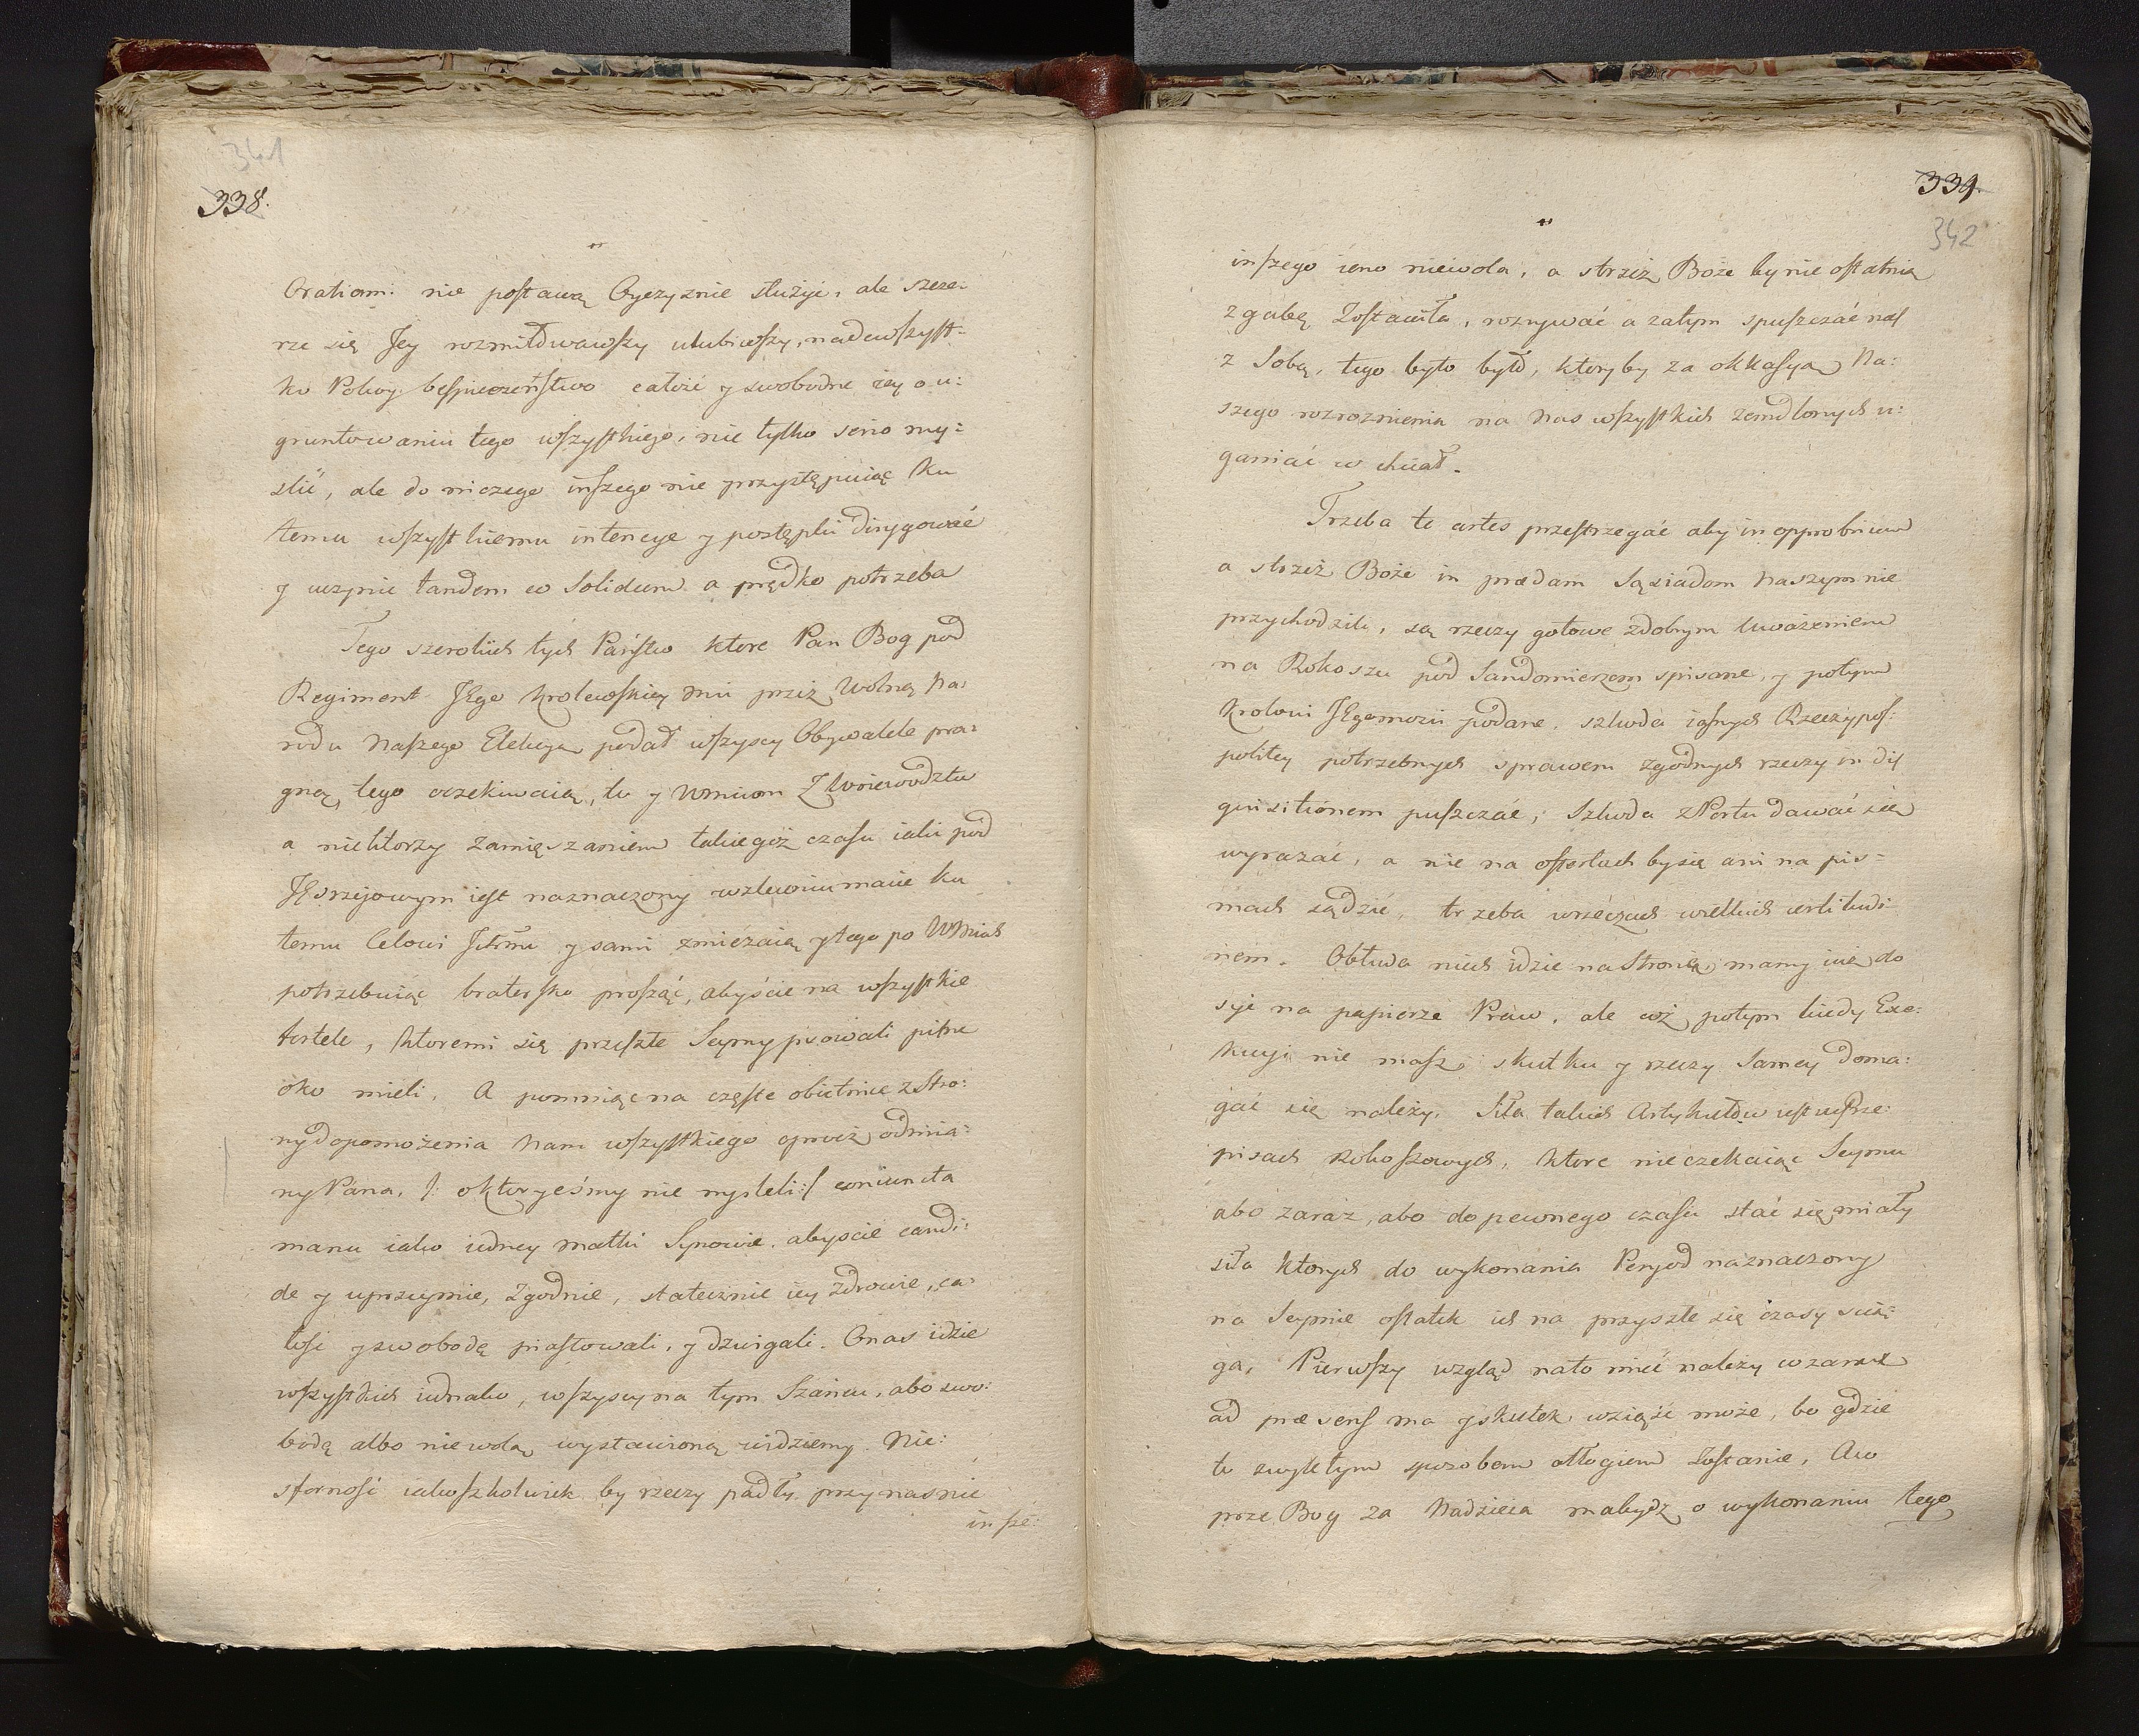 341
338.
Orationi nie postawą Oyczyznie służyć, ale szcze-
rze się Jey rozmiłowawszy ulubiwszy, nadewszyst-
ko Pokoy bespieczeństwo całość y swobodne iey o u:
gruntowaniu tego wszystkiego, nie tylko seno my:
slić, ale do niczego inszego nie przystępuiąc ku
temu wszystkiemu intencye y postępki dirygować
y uczynić tandem in Solidum a prędko potrzeba
Tego szerokich tych Państw ktore Pan Bog pod
Regiment JEgo Krolewskiey Mci przez Wolną Na:
rodu Naszego Elekcyą podał wszyscy Obywatele pra:
gną, tego oczekiwaią, tu y Wmciom Z Woiewodztw
a niektorzy zamięszaniem takiegoż czasu iaki pod
Jędrzejowym iest naznaczony
temu Celowi y sami zmierzaią y tego po WMciach
potrzebuiąc bratersko prosząc, abyście na wszystkie
fortele, ktoremi się przeszłe Seymy psowali pilne
oko mieli. A pomniąc na częste obietnice z Stro:
ny dopomożenia Nam wszystkiego oprocz odmia:
ny Pana, /: o ktoryeśmy nie mysleli :/ coniuncta
manu iako iedney matki Synowie, abyscie candi:
de y uprzeymie, Zgodnie, statecznie iey zdrowie, ca:
łość y swobodę piastowali, y dzwigali. O nas idzie
wszystkich iednako, wszyscy na tym Szańcu, abo swo:
bodą albo niewolą wystawioną widziemy. Nie:
sfornosć iakoszkolwiek by rzeczy padły przynasnie
insze:
339.
342
inszego ieno niewola, a strzeż Boże by nie ostatnią
zgubę Zostawiła, rozrywać a zatym spuszczać nas
z Sobą, tego było było, ktory by za okkasyą Na:
szego rozroznienia na Nas wszystkich zemdlonych u:
ganiać w chciał.
Trzeba te artes przestrzegać aby in opprobrium
a strzeż Boże in prædam Sąsiadom Naszym nie
przychodzili, są rzeczy gotowe z dobrym Uwożeniem
na Rokoszu pod Sandomierzem spisane, y potym
Krolowi JEgomosci podane, szkoda iasnych Rzeczypos:
politey potrzebnych sprawem zgodnych rzeczy in dis
quisitionem puszczać; Szkoda z Portu dawać się
wyrazać, a nie na ostrotach by się ani na pis=
mach sądzić, trzeba w rzeczach wielkich certitudi
nem. Obłuda niech idzie na Stronę, mamy iuż do
syć na papierze Praw, ale coż potym kiedy Exe:
kucyi nie masz, skutku y rzeczy Samey doma:
gać się należy. Siła takich Artykułow iest w Prze:
pisach Rokoszowych, ktore nie czekaiąc Seymu
abo zaraz, abo do pewnego czasu stać się miały
siła ktorych do wykonania Peryod naznaczony
na Seymie ostatek ich na przyszłe się czasy scią:
ga. Pierwszy wzgląd na to mieć należy w zaraz
ad præsens ma y skutek wziąść może, bo gdzie
to zwykłym sposobem odłogiem Zostanie, A co
prze Bog za Nadzieia ma bydz o wykonaniu tego